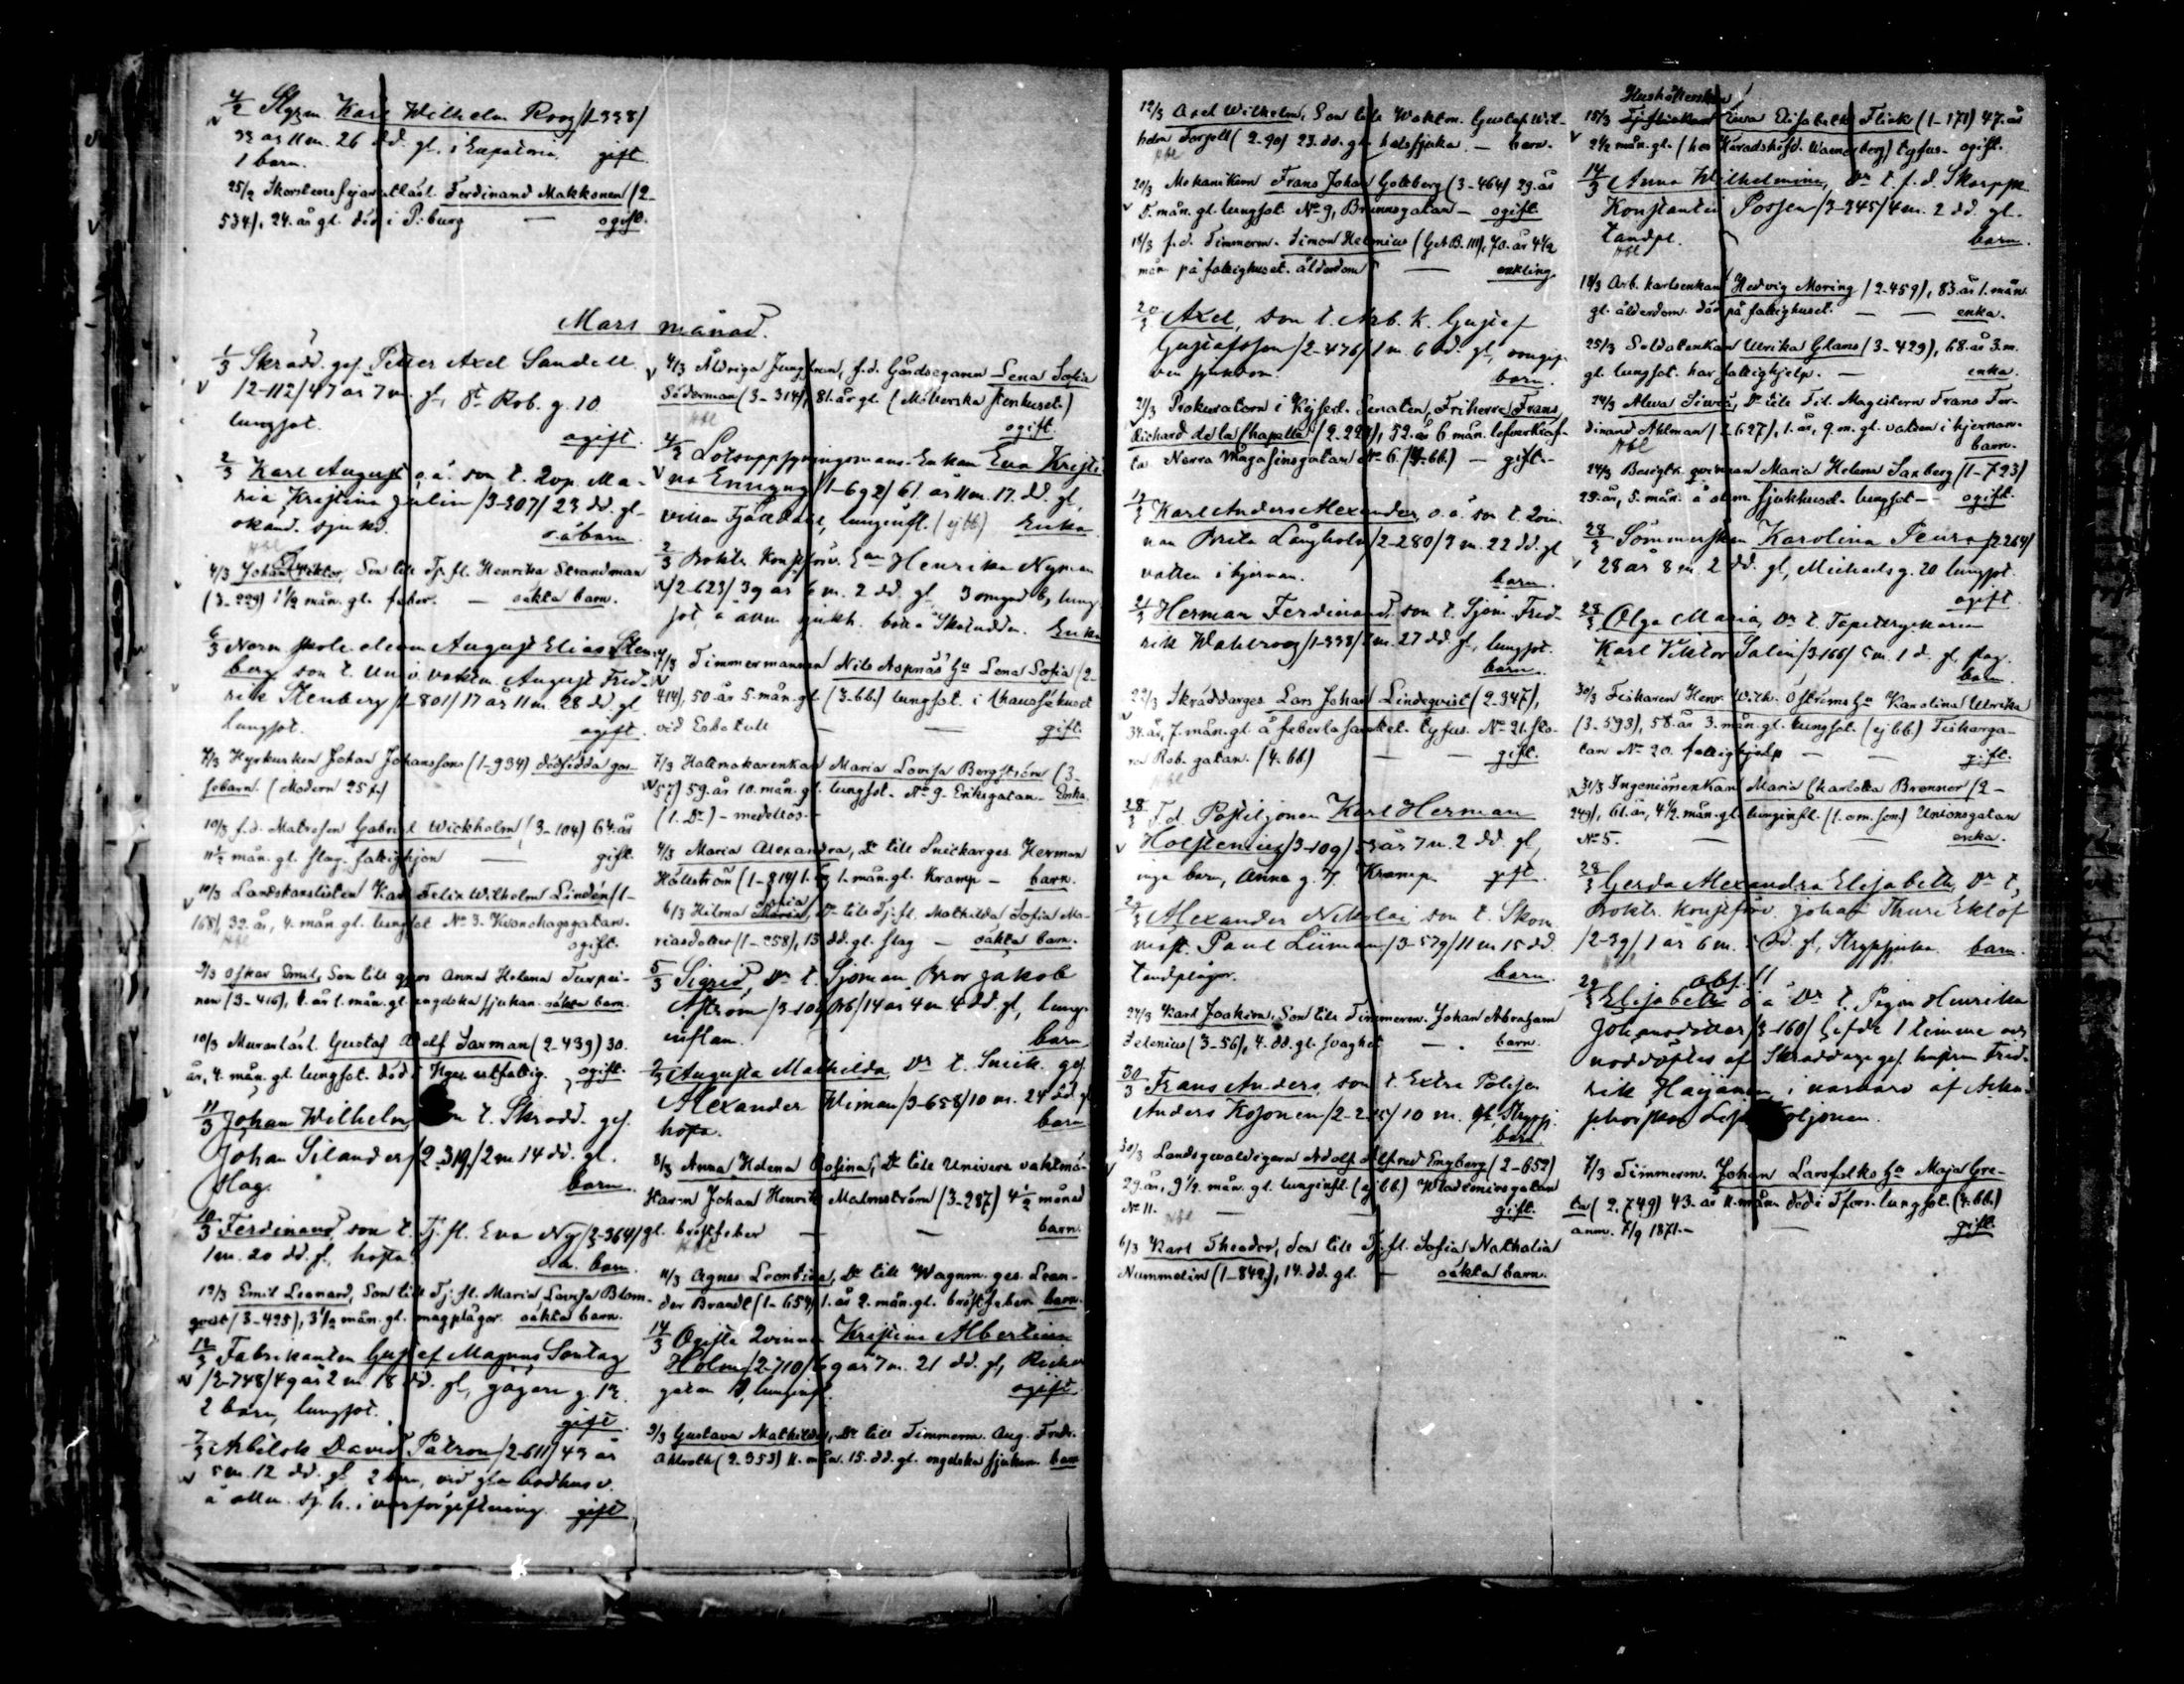 4/2 Styrm Karl Wilhelm Roos /1-338/
33 år 11 m. 26 dd. gl. i Eupatoria gift.
1 barn.
25/2 Skorstensfejarelärl. Ferdinand Makkonen (2-
534), 24. år gl. död i P:burg — ogift.
Mars månad.
1/3 Skrädd. ges. Petter Axel Sandell
/2-112/ 47 år 7 m. gl, St Rob. g. 10
lungsot. ogift.
2/3 Karl August o.ä. son t. Qvp. Ma-
ria Kristina Julin /3-307/ 23 dd. gl.
okänd. sjukd. o.ä barn.
4/3 Johan Viktor, Son till Tj. fl. Henrika Strandman
(3-229) 1 1/2 mån. gl. feber. — oäkta barn.
6/3 Norm. skole eleven August Elias Sten-
berg son t. Univ. vaktm. August Fred-
rik Stenberg /1-801/ 17 år 11 m. 28 dd. gl
lungsot. ogift.
7/3 Hyrkusken Johan Johanssons (1-934) dödfödda gos-
sebarn. (Modern 25 f.)
10/3 f.d. Matrosen Gabriel Wickholm (3-104) 64. år
11 1/2 mån. gl. slag. fattighjon — gift.
10/3 Landskanslisten Karl Felix Wilhelm Lindén (1-
168), 32. år, 4. mån. gl. lungsot No 3. Kvonohagsgatan.
ogift.
9/3 Oskar Emil, Son till qvps Anna Helena Turpei-
nen (3-416), 1. år 1. mån. gl. engelska sjukan. oäkta barn.
10/3 Murarlärl. Gustaf Adolf Saxman (2-439) 30.
år, 4. mån. gl. lungsot. död i Kges utfattig. ogift.
11/3 Johan Wilhelm, son t. Skrädd. ges.
Johan Silander /2-319/ 2 m 14 dd. gl.
slag. barn.
10/3 Ferdinand, son t. Tj. fl. Eva Ny /2-364/
1 m. 20 dd. gl., hosta. o.ä. barn.
12/3 Emil Leonard, Son till Tj. fl. Maria Lovisa Blom-
qvist (3-425), 3 1/2 mån. gl. magplågor. oäkta barn.
12/3 Fabrikanten Gustaf Magnus Sontag
/2-748/ 49 år 2 m. 18 dd. gl,
2 barn, lungsot. gift.
7/3 David Pätron /2-611/ 43 år
5 m. 12 dd. gl 2 barn, vid gla badhus v.
å allm. sj. h. i varförgiftning. gift.
4/3 Åldriga Jungfrun, f.d. Gårdsegaren Lena Sofia
Söderman (3-314), 81. år gl. (Mälkerska stenhuset.)
ogift.
4/3 Lotsuppsyningsmans-Enkan Eva Kristi-
na Enngzug /1-692/ 61. år 11 m. 17. dd. gl,
villan Fjälldahl, lunginfl. (ej bb) Enka
2/3 Bokh. Konstförv. Enn Henrika Nyman
/2-623/ 39 år 6 m. 2 dd. gl 3 omynd b, lung
sot, å allm. sjukh. Skatudden. Enka
4/3 Timmermannen Nils Aspnäs' Hu Lena Sofia (2-
414), 50. år 5. mån. gl. (3-bb.) lungsot. i Chausséhuset
vid Esbo tull — — gift.
7/3 Hattmakarenkan Maria Lovisa Bergström (3-
57) 59. år 10. mån. gl. lungsot. No 9. Eriksgatan. Enka.
(1. Dr) - medellös.-
4/3 Maria Alexandra, Dr till Snickarges. Herman
Hällström (1-814) 1. år 1. mån. gl. Kramp — barn.
6/3 Hilma Maria, Dr till Tj. fl. Mathilda Sofia Ma-
riasdotter (1-258), 13 dd. gl. slag — oäkta barn.
5/3 Sigrid, Dr t. Sjöman Bror Jakob
Åström /3-10/ 14 år 4 m. 4 dd. gl, lung-
inflam. barn
2/3 Augusta Mathilda Dr t. Snick. ges
Alexander Wiman /3-658/ 10 m. 24 dd. gl
hosta. barn
8/3 Anna Helena Rosina, Dr till Univers. vaktmä-
staren Johan Henrik Malmström (3-287) 4 1/2 månad
gl. bröstfeber — — barn.
11/3 Agnes Leontina, Dr till Wagnm. ges. Lean-
der Brandt (1-654) 1. år 2. mån. gl. bröstfeber barn.
14/3 Ogifta Qvinnan Kristina Albertina
Holm /2-710/ 69 år 7 m. 21 dd. gl,
gatan lunginfl. ogift.
9/3 Gustava Mathilda, Dr till Timmerm. Aug. Fredr.
Ahlroth (2-353) 11. mån. 15. dd. gl. engelska sjukan barn
19/3 Axel Wilhelm, Son till Waktm. Gustaf Wil-
helm Forsell (2-90) 23. dd. gl. halssjuka. — barn.
20/3 Mekanikern Frans Johan Goldberg (3-464) 29. år
5. mån. gl. lungsot. No 9, Brunnsgatan — ogift.
18/3 f.d. Timmerm. Simon Helenius (Gt B. 111), 70. år 4 1/2
mån. på fattighuset. ålderdom — enkling.
20/3 Axel, son t. Arb. K. Gustaf
Gustafsson /2-476/ 1 m. 6 dd. gl,
sjukdom. barn.
21/3 Prokuratorn i Kejserl. Senaten, Friherre Frans
Richard de la Chapelle (2-229), 52. år 6 mån. lefverkräf-
ta. Norra Magasinsgatan No 6. (4-bb.) — gift.-
19/3 Karl Anders Alexander o.ä. son t. Qvin-
nan Brita Långholm /2-280/ 2 m. 22 dd. gl
vatten i hjernan. barn.
21/3 Herman Ferdinand, son t. Sjöm. Fred-
rik Wahlroos /1-338/ 2 m. 27 dd. gl., lungsot.
barn.
22/3 Skräddarges Lars Johan Lindeqvist (2-347),
34. år, 7. mån. gl. å feberlasarettet. tyfus. No 21. Sto-
ra Rob. gatan. (4. bb) — — gift.
28/3 F.d. Postiljonen Karl Herman
Holstenius /3-109/ 53 år 7 m. 2 dd. gl,
inga barn, Anna g. 7. Kramp. gift.
27/3 Alexander Nikolai son t. Skom.
mäst. Paul Liiman /3-579/ 11 m 15 dd.
tandplågor. barn.
24/3 Karl Joakim, Son till Timmerm. Johan Abraham
Selenius (3-56), 4. dd. gl. svaghet — barn.
30/3 Frans Anders, son t. Extra Polisen
Anders Kosonen /2-2 5/ 10 m. gl, Strypsj.
barn.
30/3 Landsgevaldigern Adolf Alfred Engberg (2-652)
29. år, 9 1/2. mån. gl. lunginfl. (ej bb.) Wladimirsgatan
No 11. — — gift.
6/3 Karl Theodor, Son till Tj. fl. Sofia Nathalia
Nummelin (1-842), 14. dd. gl. — oäkta barn.
Hushållerskan
15/3 Eva Elisabeth Flink (1-171) 47. år
2 1/2 mån. gl. (hos Häradshöfd. Wænerberg) tyfus- ogift.
14/3 Anna Wilhelmina, Dr t. f.d. Skarppsk.
Konstantin Possen /3-345/ 4 m. 2 dd. gl.
tandpl. barn.
18/3 Arb. karlsenkan Hedvig Moring (2-459), 83. år 1. mån.
gl. ålderdom. död på fattighuset. — — enka.
25/3 Soldatenkan Ulrika Glans (3-429), 68. år 3. m.
gl. lungsot. har fattighjelp. — enka.
24/3 Alma Siviä, Dr till Fil. Magistern Frans Fer-
dinand Ahlman (2-627), 1. år, 9. m. gl. vatten i hjernan.
barn.
24/3 Besigtt. qvinnan Maria Helena Saxberg (1-723)
29. år, 5. mån. å allm. sjukhuset. lungsot — ogift.
28/3 Sömmerskan Karolina Peura /2264/
28 år 8 m. 2 dd. gl, Michaels g. 20 lungsot.
ogift.
28/3 Olga Maria, Dr t. Tapetryckaren
Karl Viktor Salin /3-166/ 5 m. 1 d. gl, slag.
barn
30/3 Fiskaren Henr. Wilh. Öströms Hu Karolina Ulrika
(3-593), 58. år 3. mån. gl. lungsot. (ej bb.) Fiskarga-
tan No 20. fattighjelp — — gift.
31/3 Ingeniörsenkan Maria Charlotta Brenner (2-
249), 61. år, 4 1/2. mån. gl. lunginfl. (1. om. son.) Unionsgatan
No 5. — enka.
28/3 Gerda Alexandra Elisabeth, Dr t,
Bokh. Konstförv. Johan Thure Eklöf
/2-39/ 1 år 6 m. dd. gl, Strypsjuka. barn.
obs.!!
29/3 Elisabeth o.ä Dr t. Pigan Henrika
Johansdotter /3-160/ lefde 1 timme och
nöddöptes af Skräddare ges. hustrun Fred-
rik i närvaro af
7/3 Timmerm. Johan Larsfolks Hu Maja Gre-
ta (2.749) 43. år 11. mån. död i Tfors. lungsot. (4. bb.)
anm. 7/9 1871.- — gift.